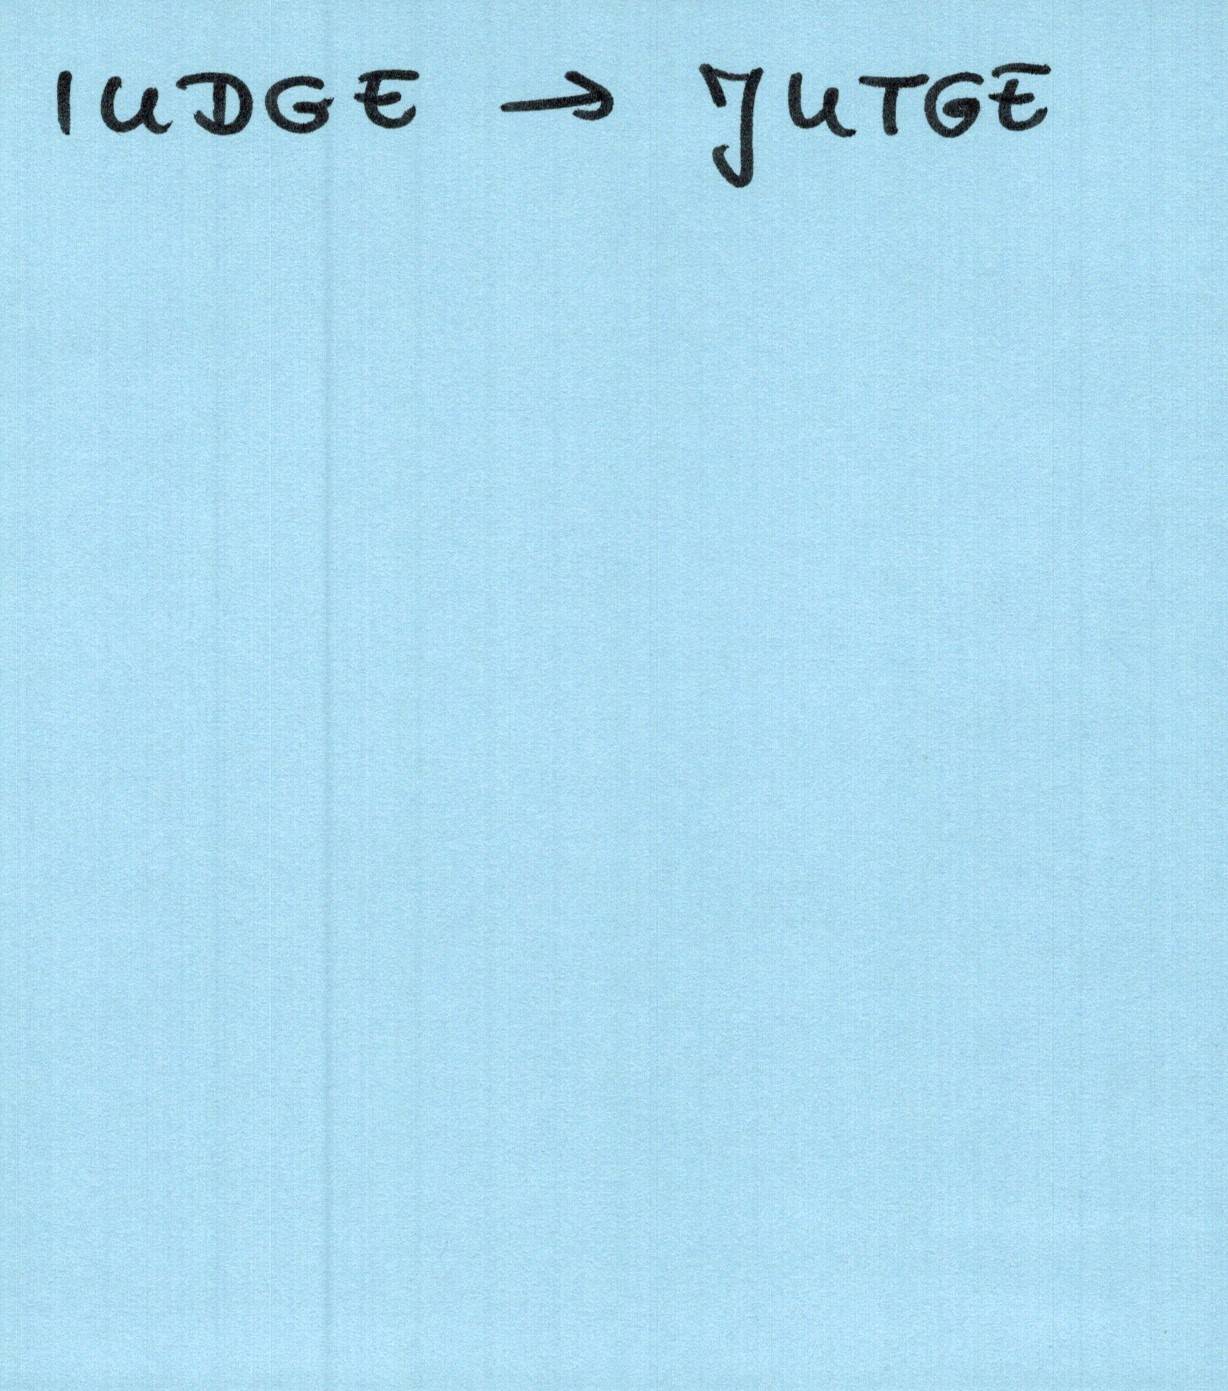 IUDGE → JUTGE